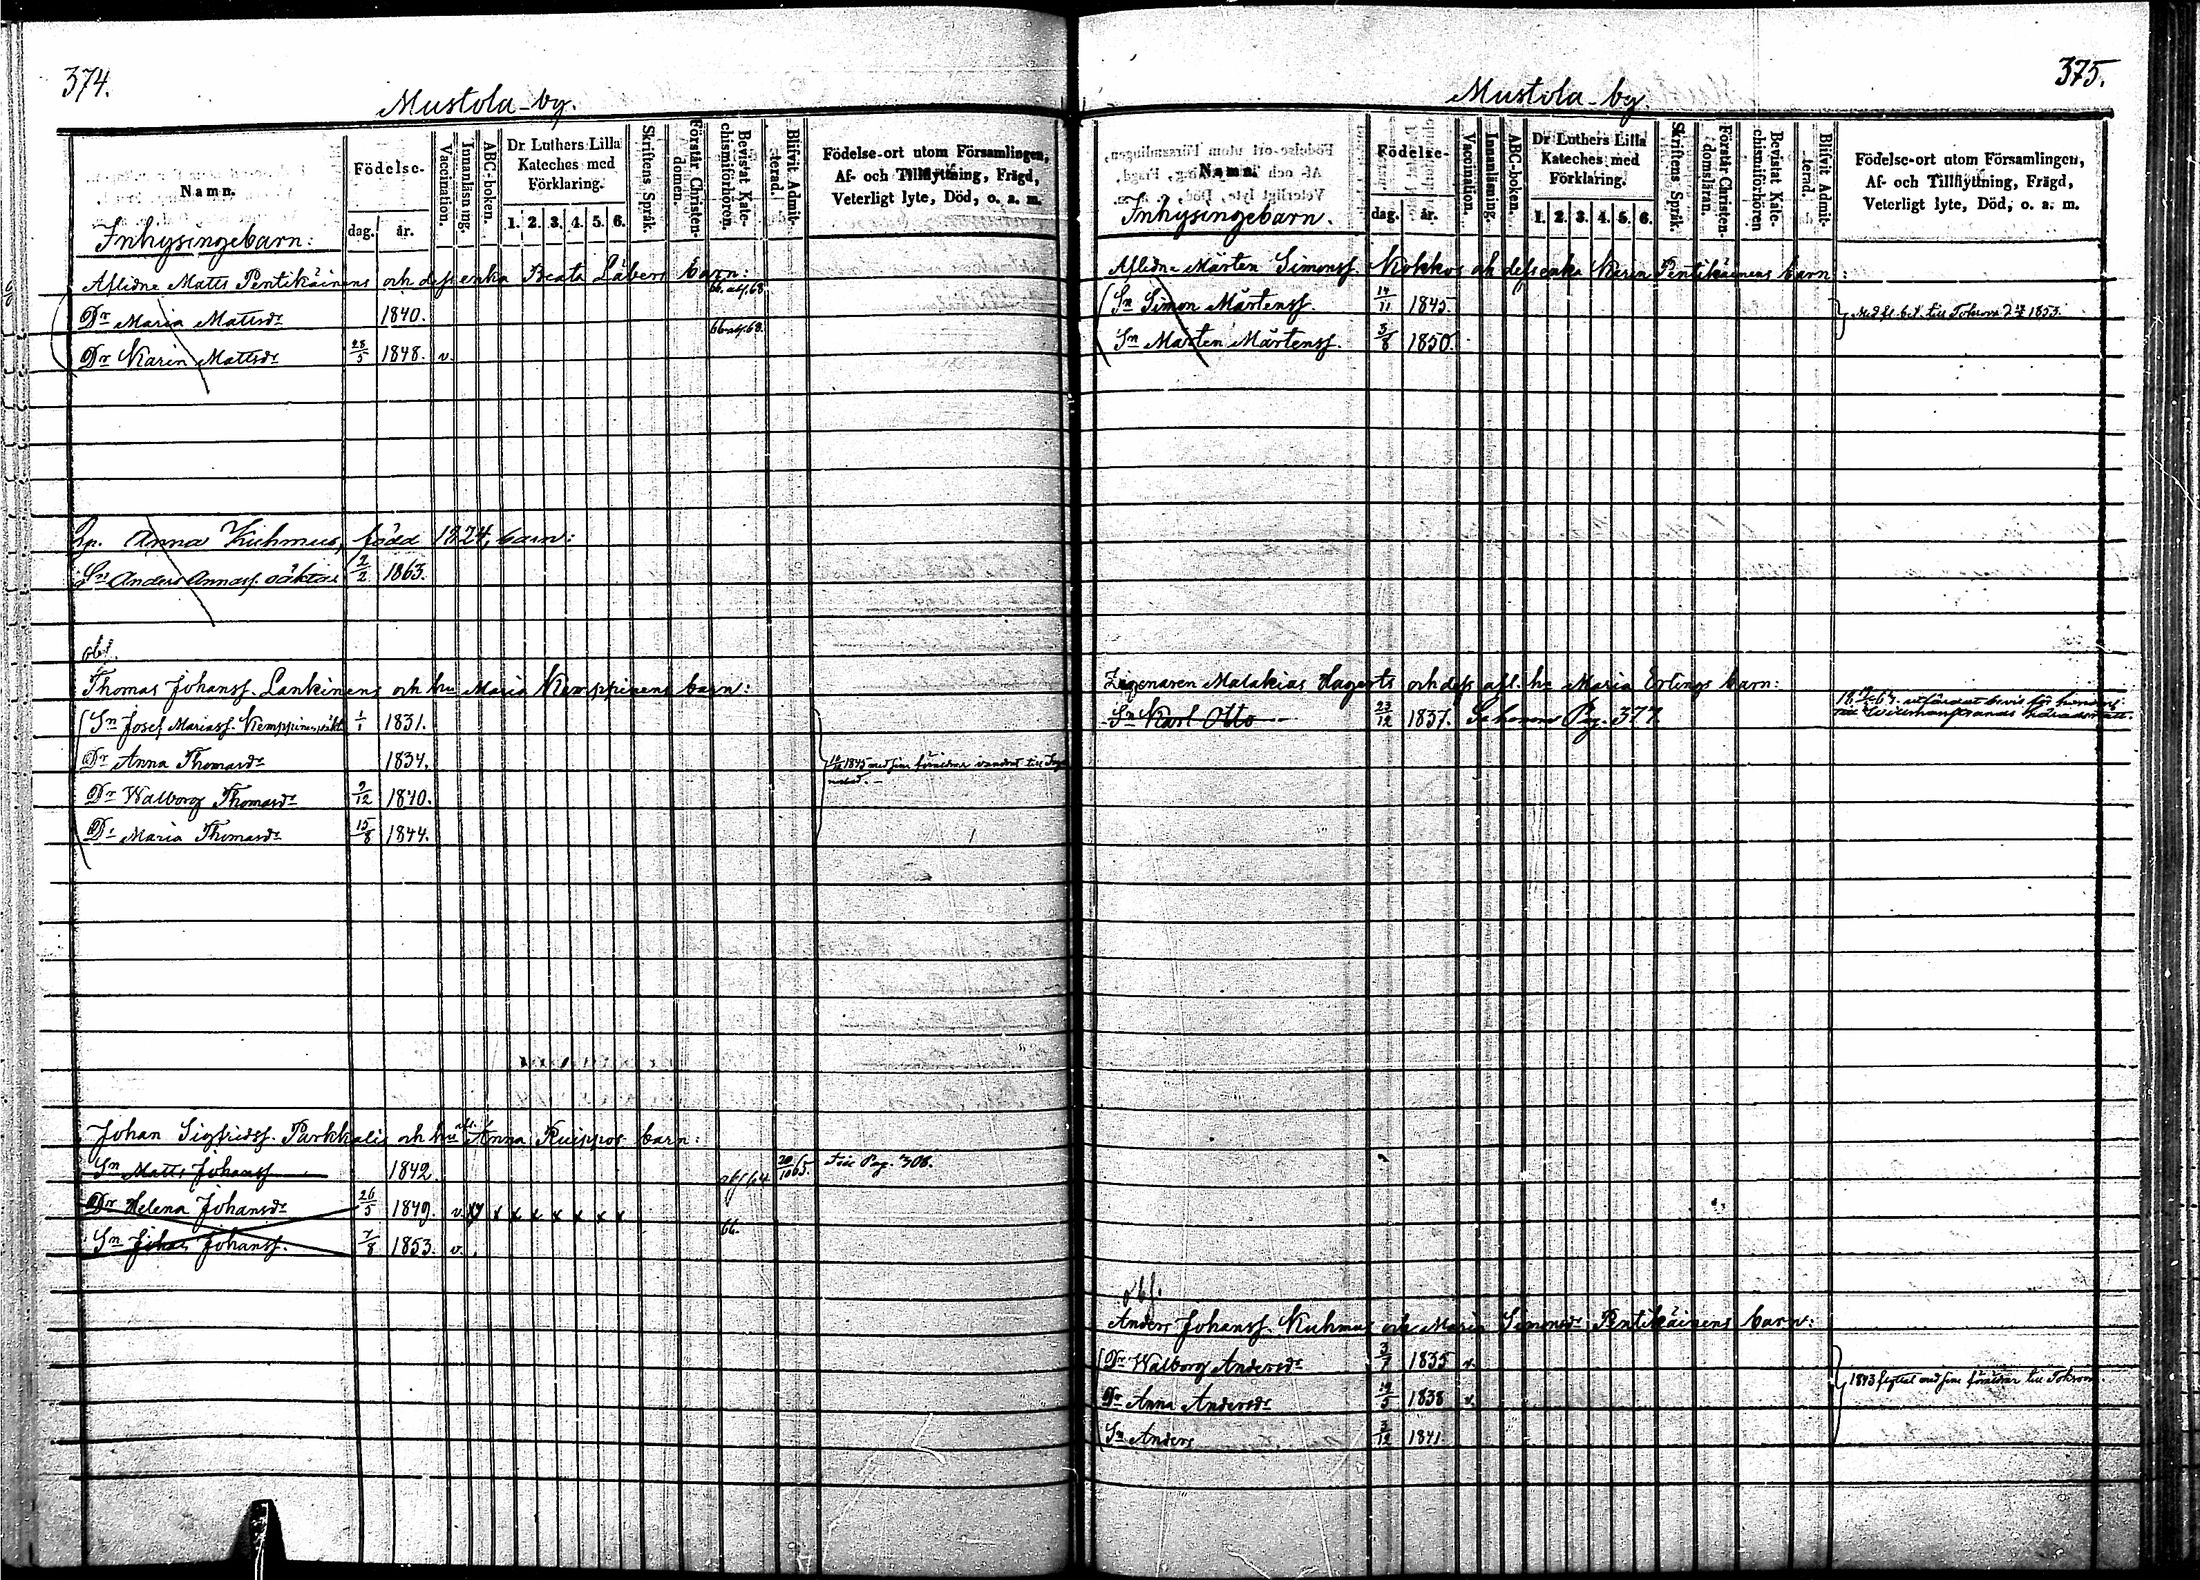 374.
Mustola-by.
Namn.
Födelse-
dag.
år.
Vaccination.
Innanläsning.
ABC-boken.
Dr Luthers Lilla
Kateches med
Förklaring.
1. 2. 3. 4. 5. 6.
Skriftens Språk.
Förstår Christen-
domen.
Bevistat Kate-
chismiförhören.
Blifvit Admit-
terad.
Födelse-ort utom Församlingen,
Af- och Tillflyttning, Frägd,
Veterligt lyte, Död, o. a. m.
Inhysingebarn:
Aflidne Matts Pentikäinens och dess enka Beata barn:
Dr Maria Mattsdr 1840.
Dr Karin Mattsdr 28/5 1848. v.
Anna Kuhmus, född 1824, barn:
Sn Anders Annass. oäkta 2/2 1863.
obs.
Thomas Johanss. Lankinens och hu Maria Kemppinens barn:
Sn Josef Mariass. Kemppinen, oäkta 1/1 1831.
Dr Anna Thomasdr 1834.
1845 med sine föräldrar vandrat till
Dr Walborg Thomasdr 9/12 1840.
Dr Maria Thomasdr 15/8 1844.
Johan Sigfridss. Parkkalis och hu Anna Ruippos barn:
Sn Matts Johanss 1842. 20/10 65. till Pag. 308.
Dr Helena Johansdr 26/5 1849. v. x x x x x x x
Sn Johan Johanss. 7/8 1853. v. 66.
375.
Mustola-by
Namn.
Födelse-
dag.
år.
Vaccination.
Innanläsning.
ABC-boken.
Dr Luthers Lilla
Kateches med
Förklaring.
1. 2. 3. 4. 5. 6.
Skriftens Språk.
Förstår Christen-
domsläran.
Bevistat Kate-
chismiförhören
Blifvit Admit-
terad.
Födelse-ort utom Församlingen,
Af- och Tillflyttning, Frägd,
Veterligt lyte, Död, o. a. m.
Inhysingebarn.
Aflidne Mårten Simonss. Kokkos och dess enka Karin Pentikäinens barn:
Sn Simon Mårtenss. 14/11 1845.
till Toksova 1853.
Sn Mårten Mårtenss. 3/8 1850.
Zigenaren Malakias Hagerts och dess afl. hu Maria Erlings barn:
Sn Karl Otto 23/12 1837. Pag. 377.
utfärdat bevis för honom
Anders Johanss. Kuhmus och Maria Simonsdr Pentikäinens barn:
Dr Walborg Andersdr 3/7 1835 v.
1843 flyttat med sine föräldrar till Toksova.
Dr Anna Andersdr 1838 v.
Sn Anders 3/12 1841